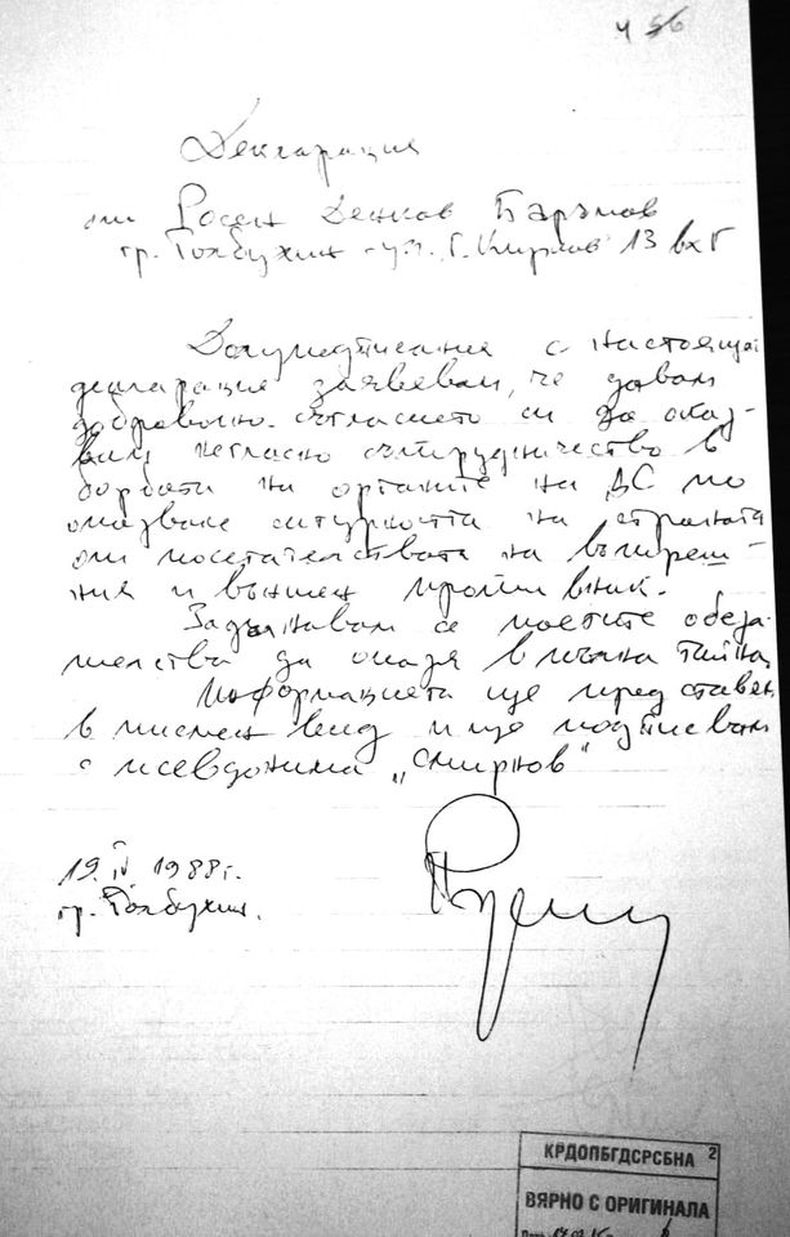 4 56
Декларация
от Росен Денков Баръмов
гр. Толбухин - ул. Г. Кирков 13 вх Г
Долуподписания с настояща
декларация заявявам, че давам
доброволно съгласието си да оказ-
вам негласно сътрудничество в
борбата на органите на ДС по
опазване сигурността на страната
от посегателствата на вътреш-
ния и външен противник.
Задължавам се моите обеза-
телства да опазя в пълна тайна.
Информацията ще представя
в писмен вид и ще подписвам
с псевдонима „Смирнов"
19. IV. 1988 г.
гр. Толбухин.
КРДОПБГДСРСБНА 2
ВЯРНО С ОРИГИНАЛА